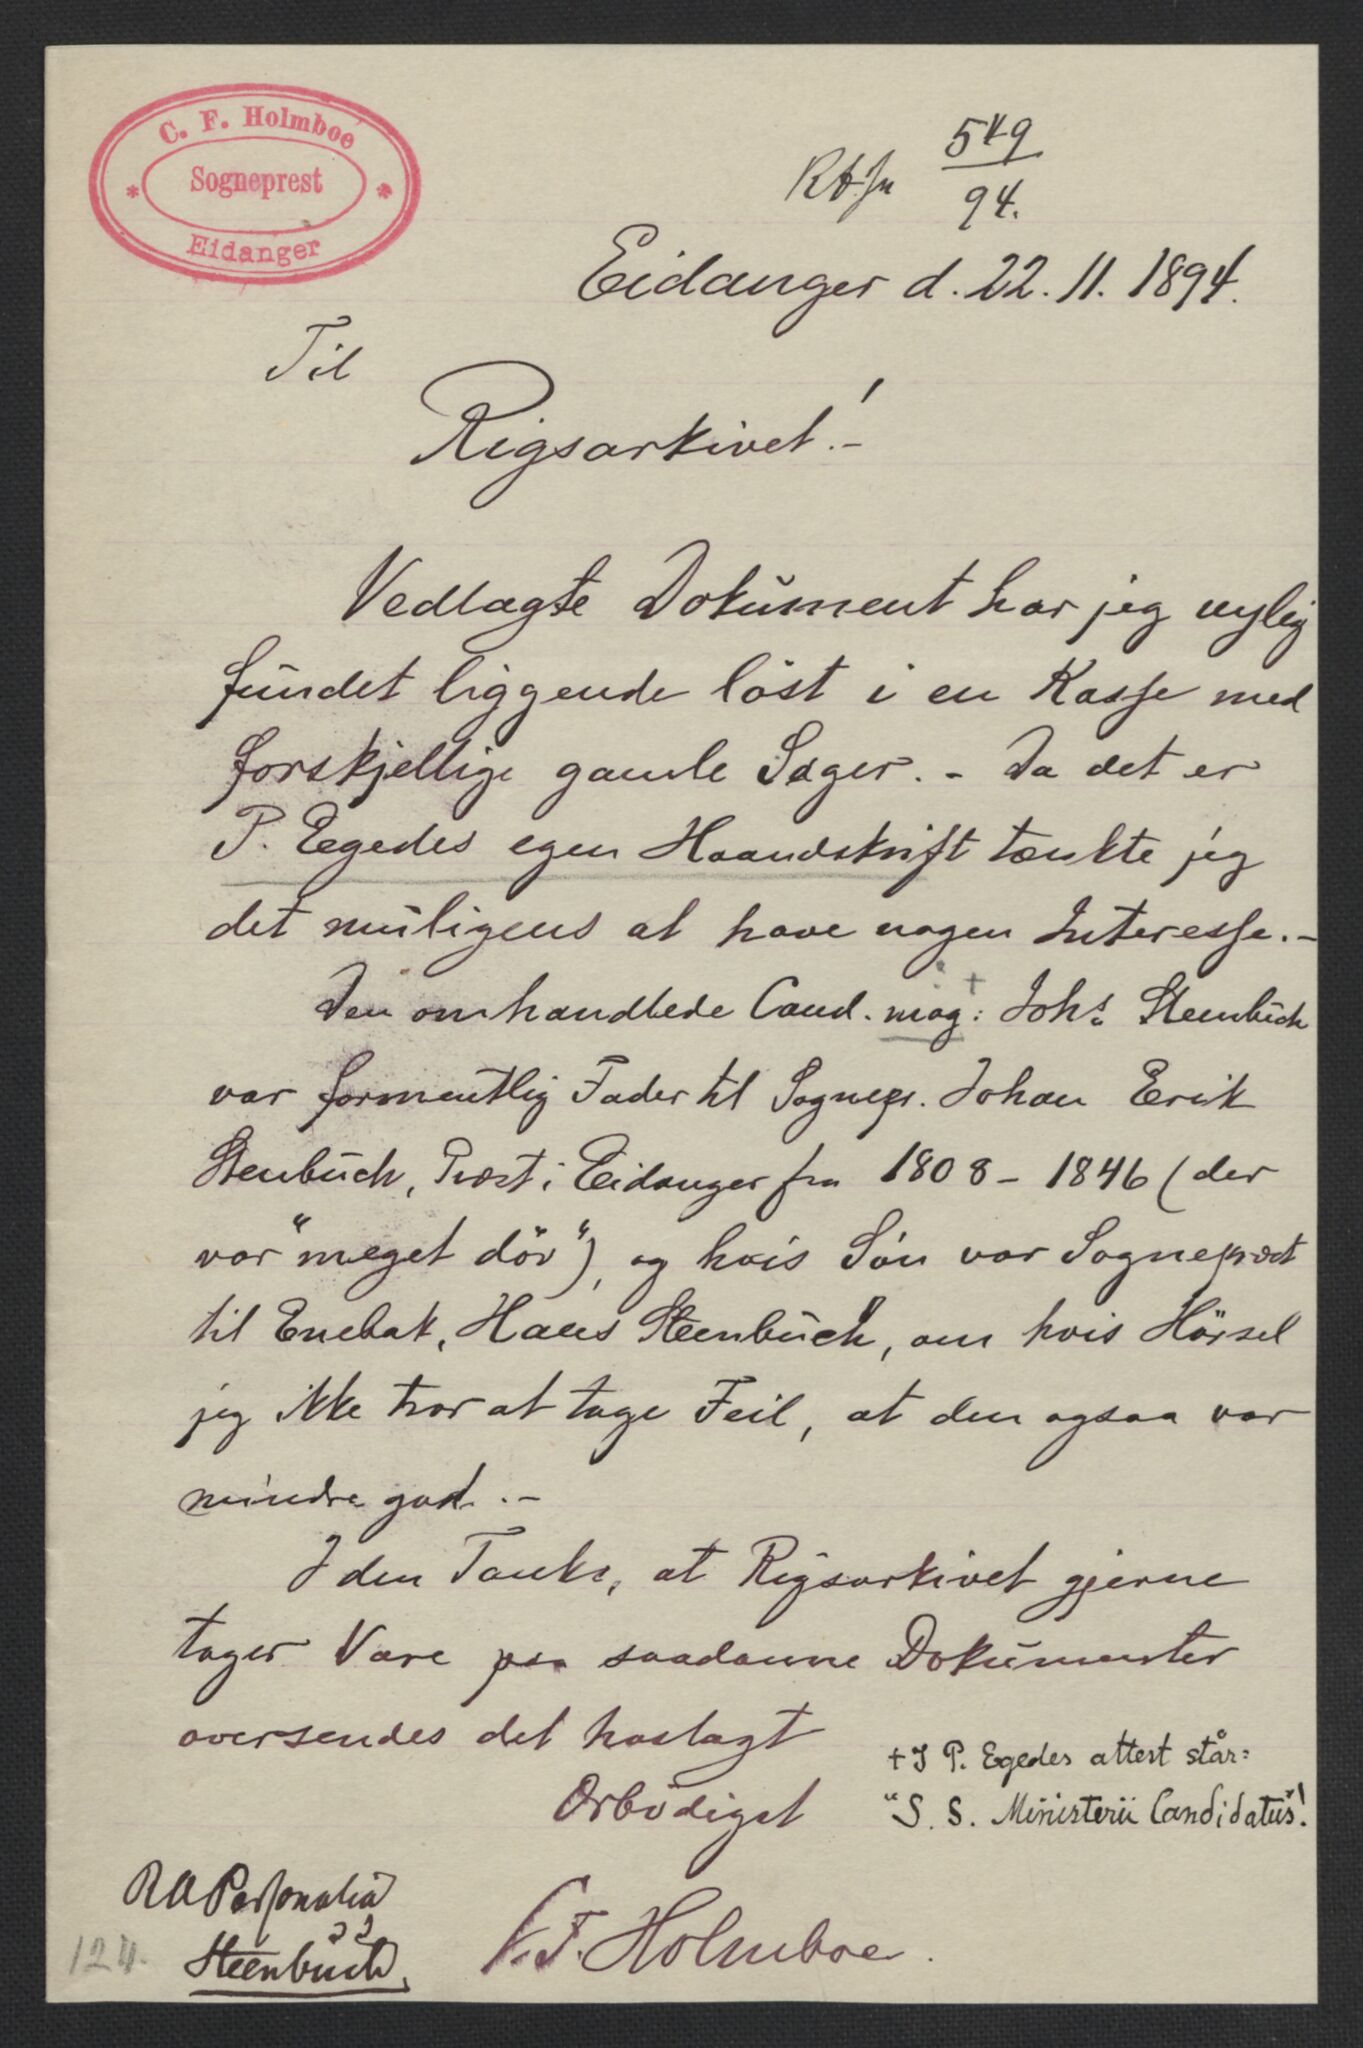 C. F. Holmboe
Sogneprest
Eidanger
549
94.
Eidanger d. 22. 11. 1894.
Til
Rigsarkivet! -
Vedlagte Dokument har jeg nylig
fundet liggende löst i en Kasse med
forskjellige gamle Sager. - Da det er
P. Egedes egen Haandskrift tænkte jeg
det muligens at have nogen Interesse. -
Den omhandlede Cand. mag: + Johs. Steenbuch
var formentlig Fader til Sognepr. Johan Erik
Stenbuch, Præst i Eidanger fra 1808 - 1846 (der
var "meget döv"), og hvis Sön var Sogneprest
til Enebak, Hans Steenbuch, om hvis Hörsel
jeg ikke tror at tage Feil, at den ogsaa var
mindre god. -
I den Tanke, at Rigsarkivet gjerne
tager Vare paa saadanne Dokumenter
oversendes det hoslagt
Örbödigst
+ I P. Egedes attest står:
"S. S. Ministerii Candidatus"!
C. F. Holmboe.
RA Personalia
Steenbuch.
124.